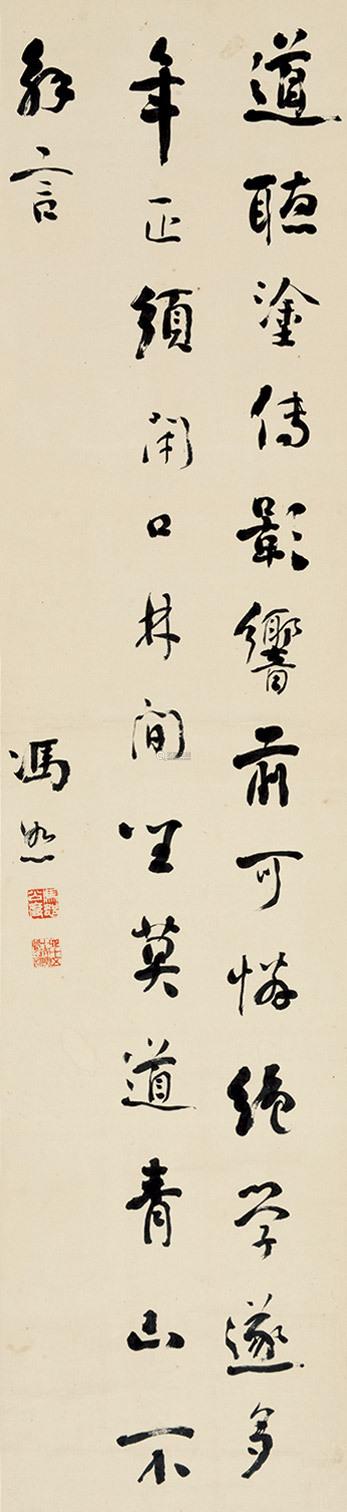 道聽塗傳影響前可憐絕學遂多
年正須閉口林間坐莫道青山不
解言
馮恕